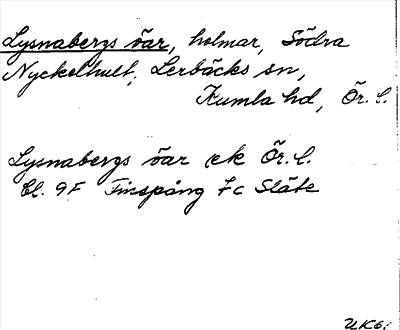 Lysnabergs öar, holmar, Södra
Nyckelhult, Lerbäcks sn,
Kumla hd, Ör. l.
Lysnabergs öar ek Ör. l.
Bl. 9F Finspång 7c Släte
UK61